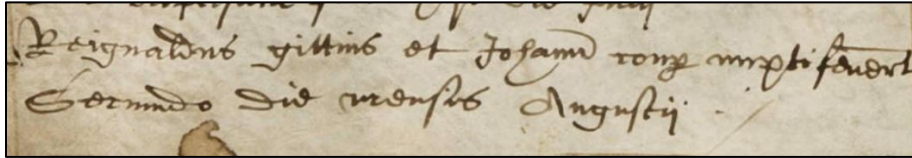 Reignaldus gittins et Johann coup nupti fuerunt
Secundo die mensis Augustij